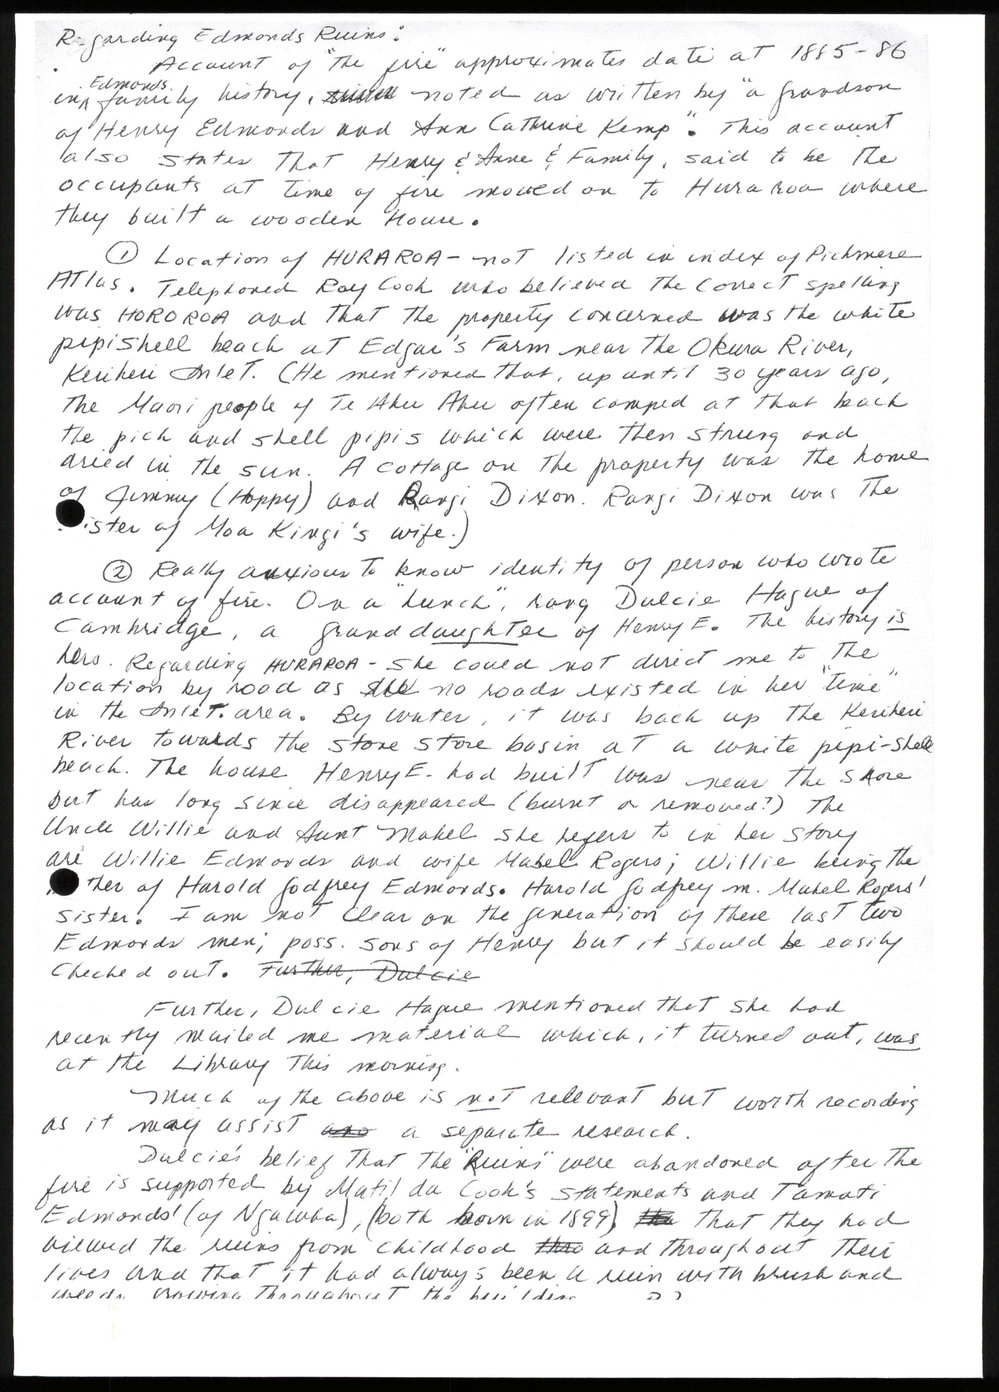 Regarding Edmonds Ruins:
Account of "the fire" approximates date at 1885-86
in Edmonds family history, noted as written by "a grandson
of Henry Edmonds and Ann Cathrine Kemp". This account
also states that Henry & Anne & Family, said to be the
occupants at time of fire moved on to Huraroa where
they built a wooden House.
① Location of HURAROA - not listed in index of Pichmere
Atlas. Telephoned Ray Cook who believed the correct spelling
was HOROROA and that the property concerned was the white
pipishell beach at Edgar's Farm near the Okura River,
Kerikeri Inlet. (He mentioned that, up until 30 years ago,
the Maori people of Te Ahu Ahu often camped at that beach
the pick and shell pipis which were then strung and
dried in the sun. A cottage on the property was the home
of Jimmy (Hoppy) and Rangi Dixon. Rangi Dixon was the
sister of Moa Kingi's wife.)
② Really anxious to know identity of person who wrote
account of fire. On a "hunch", rang Dulcie Hague of
Cambridge, a granddaughter of Henry E. The history is
hers. Regarding HURAROA - she could not direct me to the
location by road as no roads existed in her "time"
in the Inlet area. By water, it was back up the Kerikeri
River towards the Stone Store basin at a white pipi-shell
beach. The house Henry E. had built was near the shore
but has long since disappeared (burnt or removed?) The
Uncle Willie and Aunt Mabel she refers to in her story
are Willie Edmonds and wife Mabel Rogers; Willie being the
ther of Harold Godfrey Edmonds. Harold Godfrey m. Mabel Rogers'
sister. I am not clear on the generation of these last two
Edmonds men; poss. sons of Henry but it should be easily
checked out. Further, Dulcie
Further, Dulcie Hague mentioned that she had
recently mailed me material which, it turned out, was
at the Library this morning.
Much of the above is not relevant but worth recording
as it may assist a separate research.
Dulcie's belief that the "Ruins" were abandoned after the
fire is supported by Matilda Cook's statements and Tamati
Edmonds' (of Ngawha), (both born in 1899) that they had
viewed the ruins from childhood and throughout their
lives and that it had always been a ruin with brush and
weeds growing throughout the building